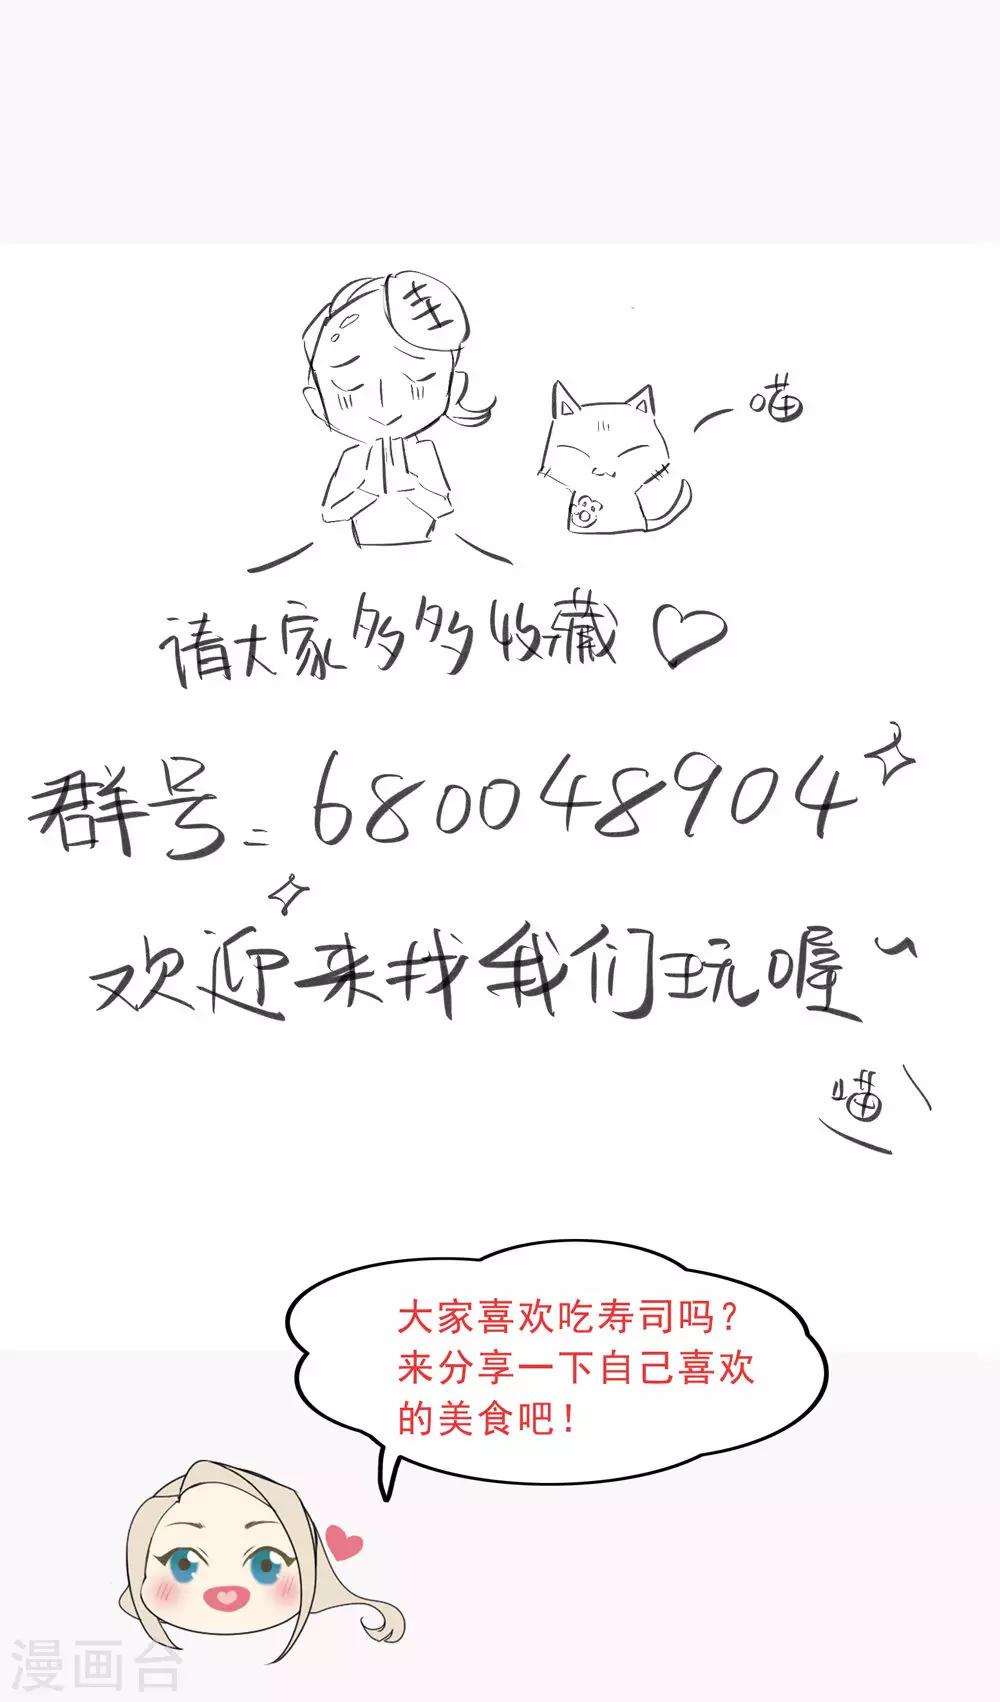 主
喵
请大家多多收藏
群号：680048904
欢迎来找我们玩喔~
喵
大家喜欢吃寿司吗？
来分享一下自己喜欢
的美食吧！
漫画台